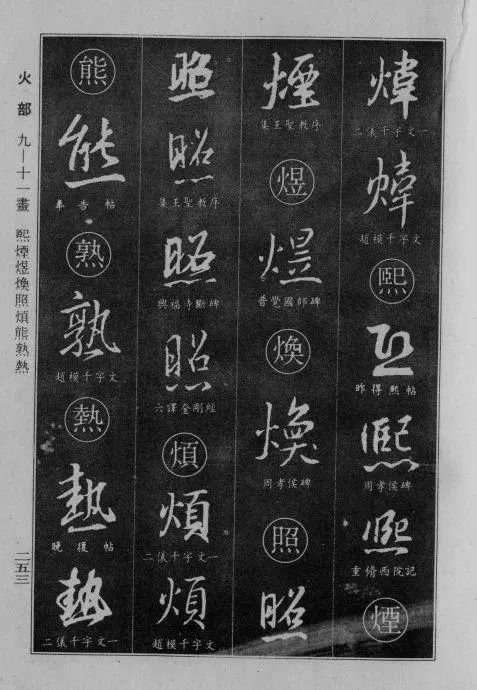 煒
二儀千字文一
煒
趙模千字文
熙
熙
昨得熙帖
熙
周孝侯碑
熙
重脩西院記
煙
煙
集王聖教序
煜
煜
普覺國師碑
煥
煥
周孝侯碑
照
照
照
照
集王聖教序
照
興福寺斷碑
照
六譯金剛經
煩
煩
二儀千字文一
煩
趙模千字文
熊
熊
奉告帖
熟
熟
趙模千字文
熱
熱
晚復帖
熱
二儀千字文一
火部 九—十一畫 熙煙煜煥照煩熊熟熱
二五三